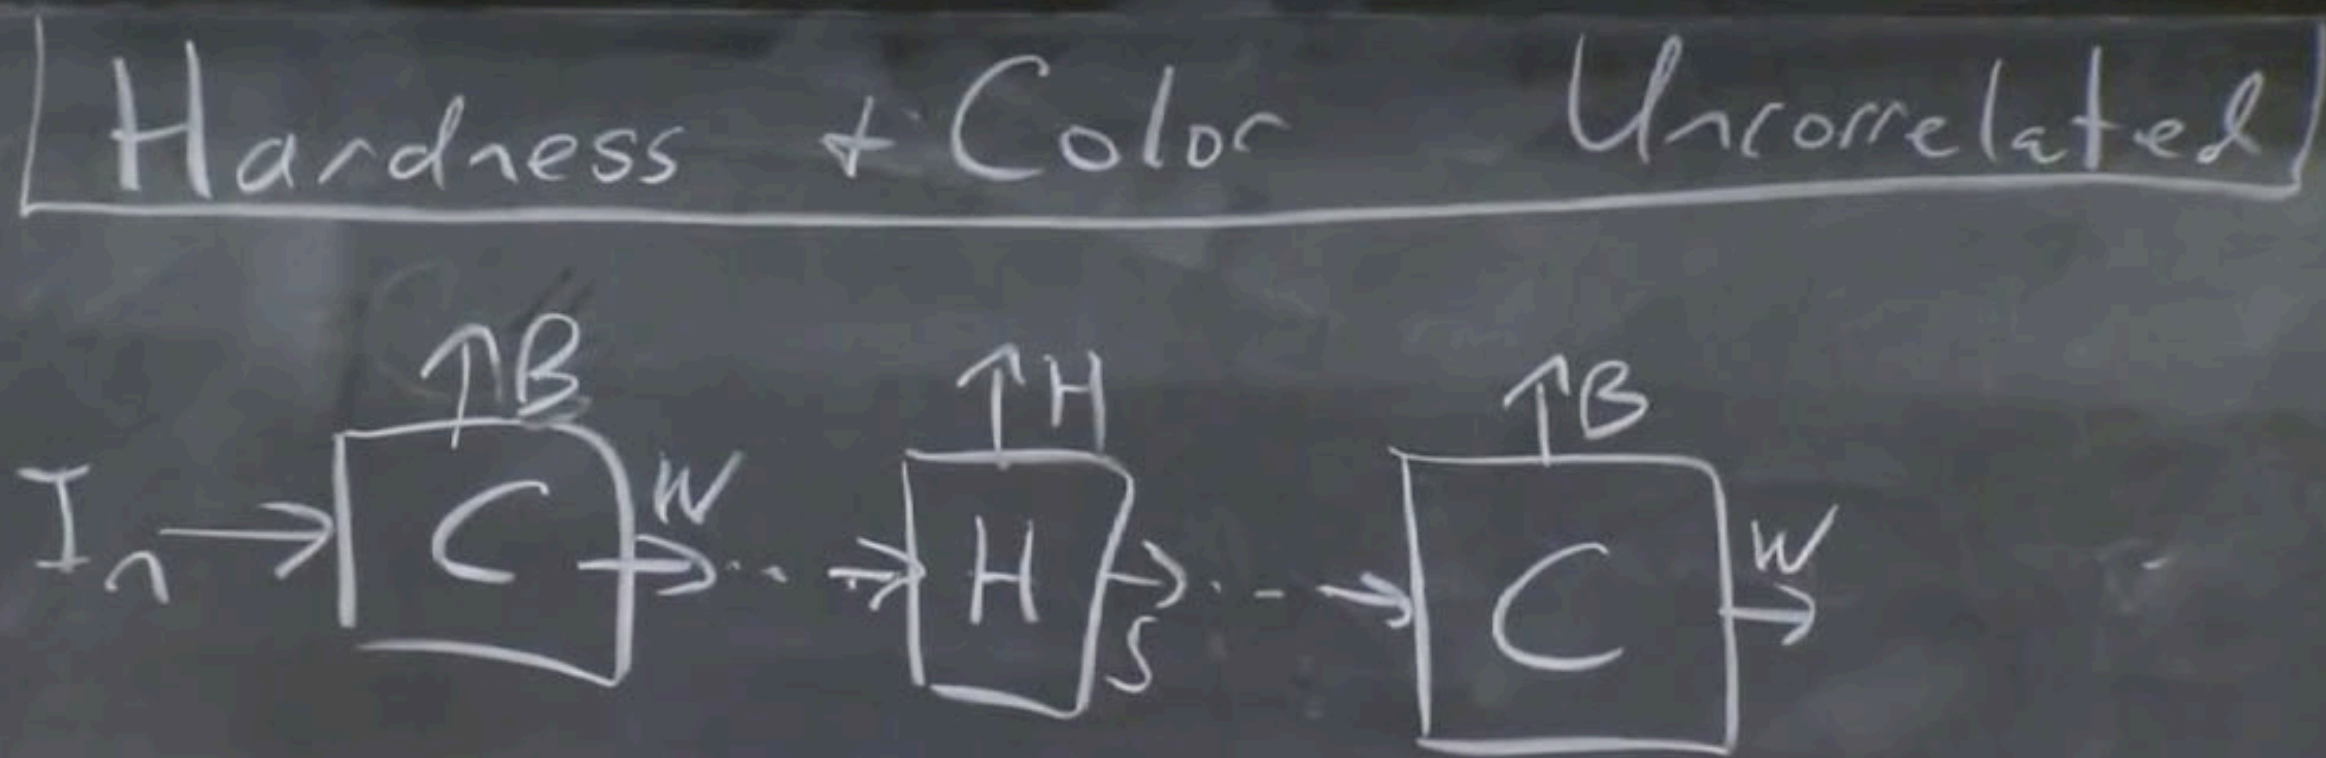 Hardness + Color Uncorrelated
B H B
In C W H S C W